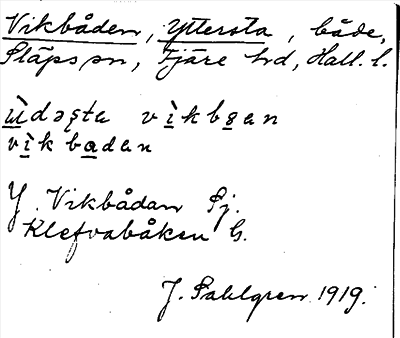 Vikbåden, Yttersta, både,
Släps sn, Fjäre hd, Hall. l.
ùdəsta vìkbgen
vìk badan
Y. Vikbådan Sj.
Klefvabåken G.
J. Sahlgren 1919.